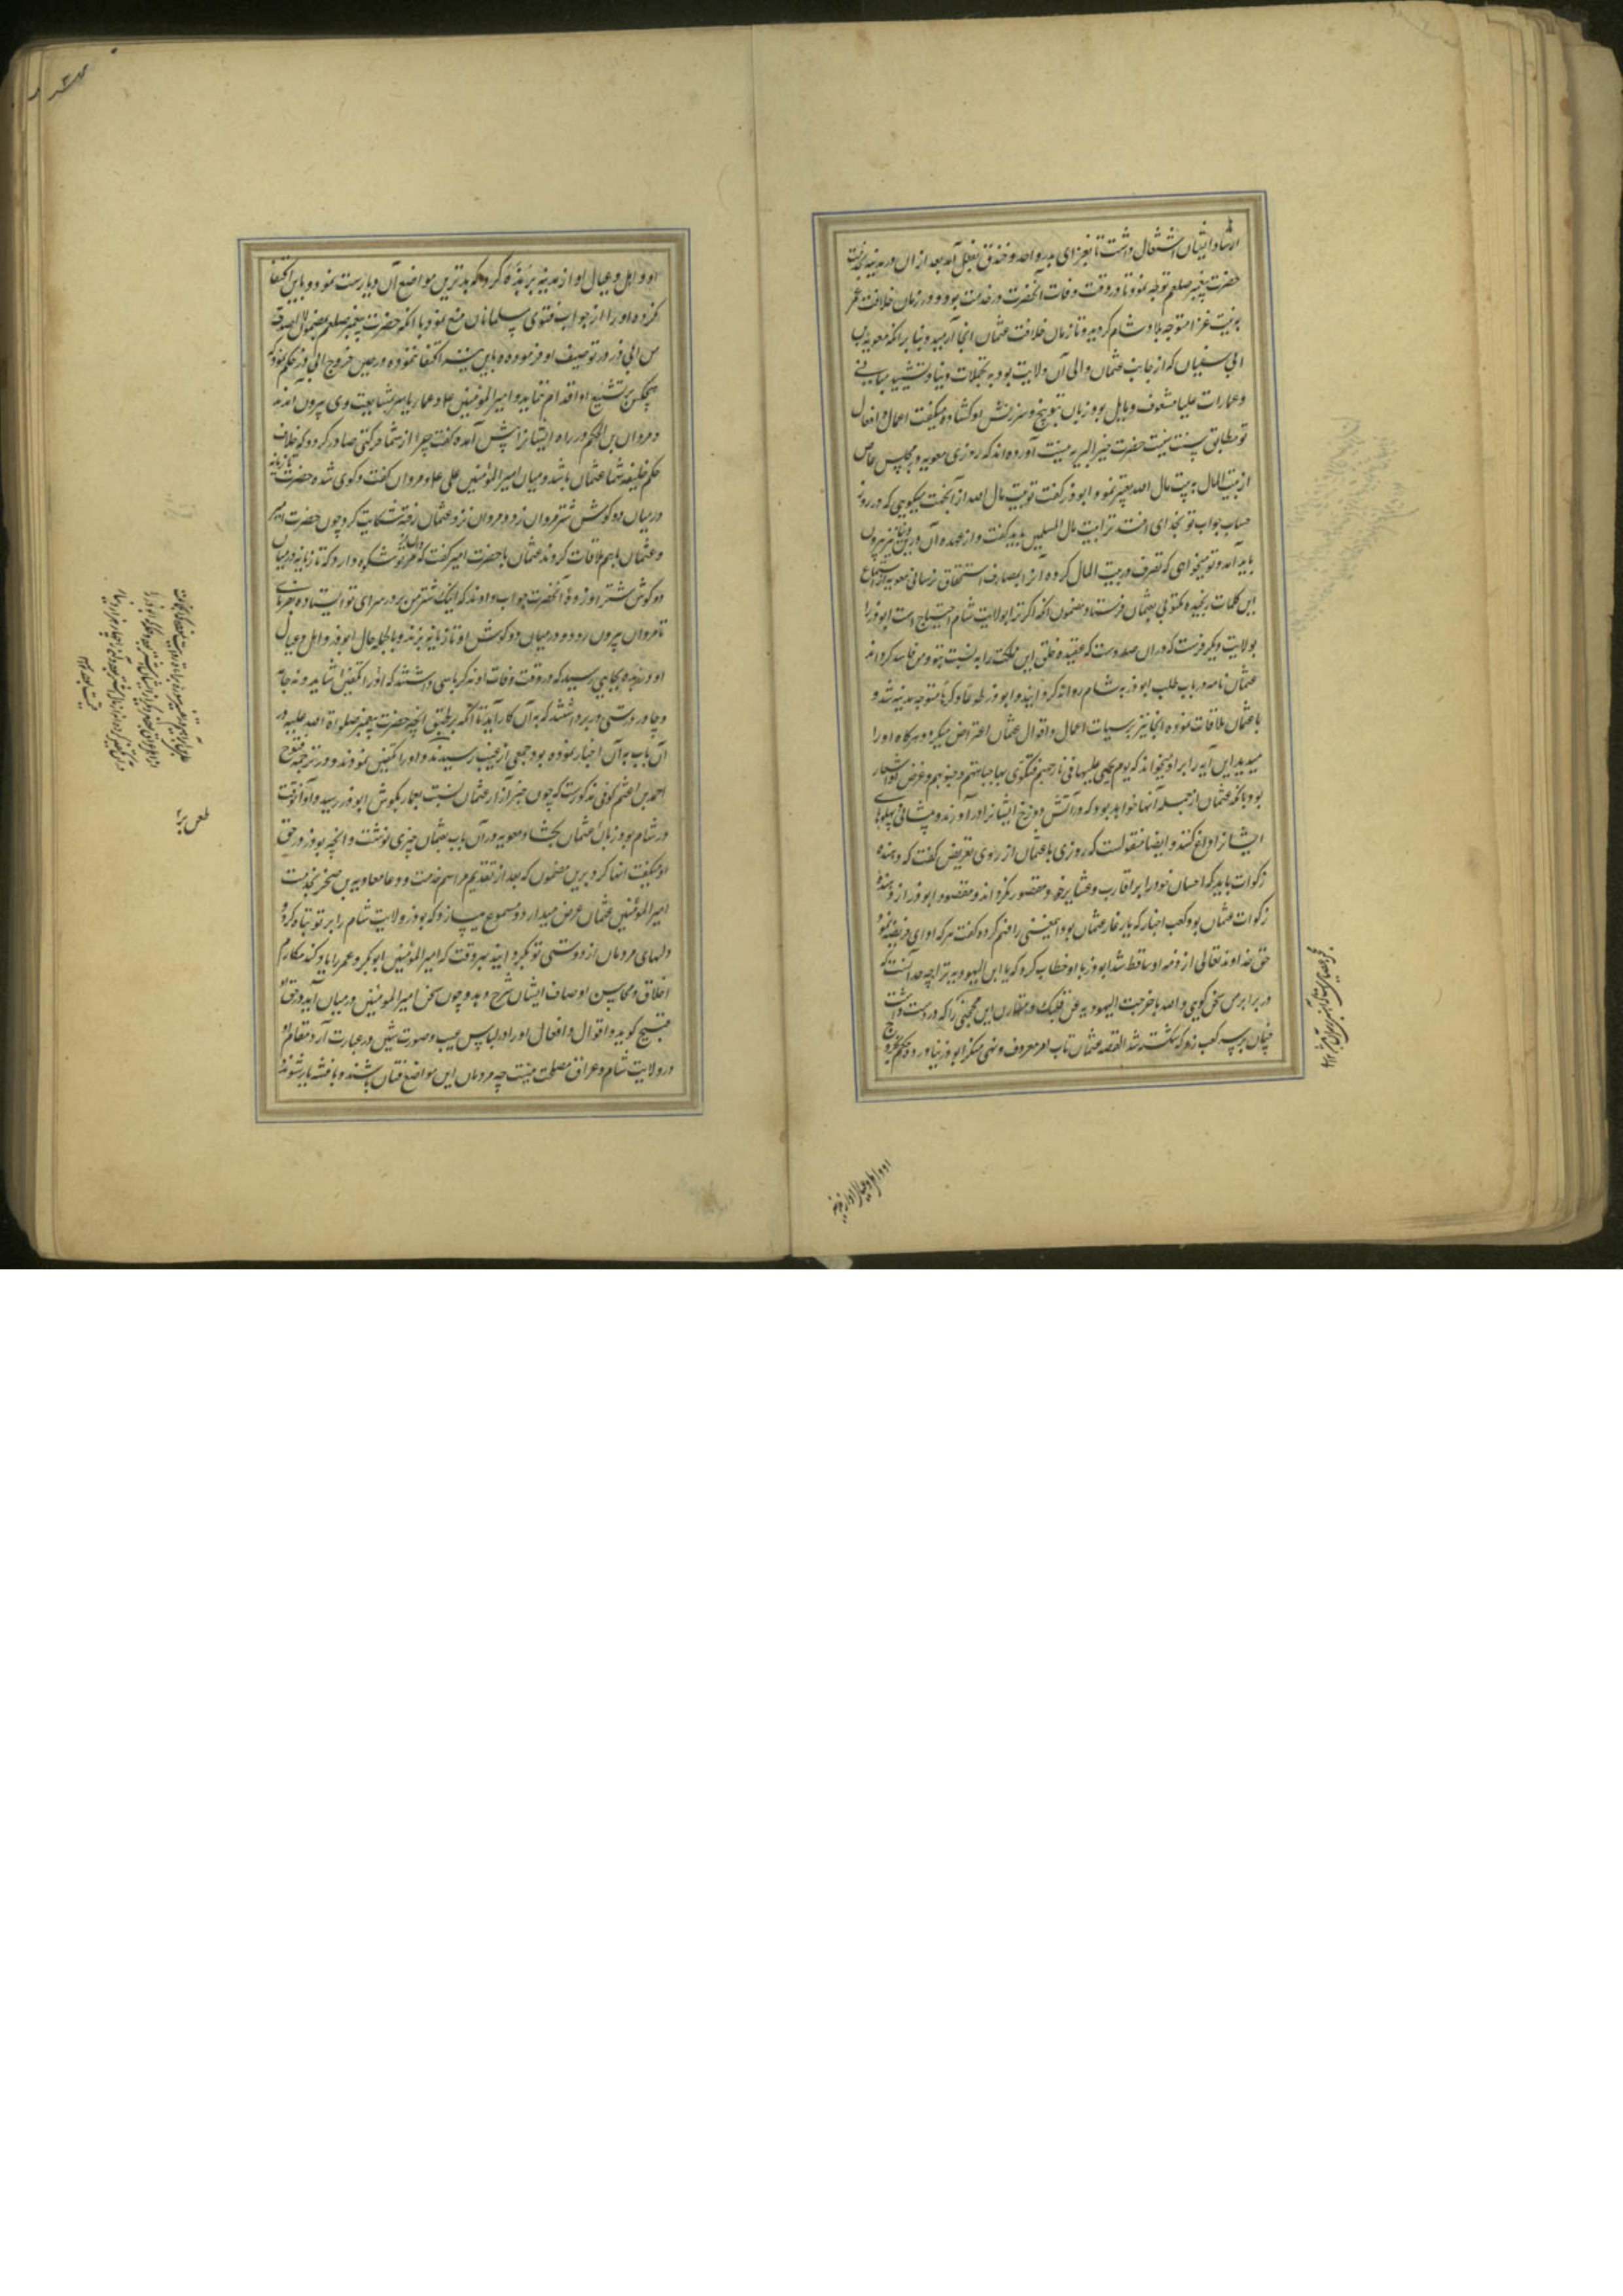 ارشاد ایشان اشتغال داشت تا بغزای بدر و احد و خندق بفعل آمد بعد از ان در مدینه بخدمت
حضرت پیغمبر صلعم توجه نمود تا در وقت وفات آنحضرت در خدمت بود و در زمان خلافت عمر
بنیت غزا متوجه بلاد شام کردید و تا زمان خلافت عثمان انجا آرمید و بنا بر انکه معویه بن
ابی سفیان که از جانب عثمان والی آن ولایت بود به تجملات دنیا و تشیید مبانی
و عمارات علیا مشعوف و مایل بود زبان بتوبیخ و سرزنش او کشاده میکفت اعمال و افعال
تو مطابق سنت سنیت حضرت خیر البریه نیست آورده اند که روزی معویه در مجلس خاص
از بیت المال به بیت مال الله تعبیر نمود ابوذر کفت تو بیت مال الله از آنجهت میکویی که در روز
حساب جواب تو بخدای افتد ترا بیت مال المسلمین باید کفت و از عهده آن در دنیا نیز بیرون
باید آمد و تو میخواهی که تصرف در بیت المال کرده آنرا بمصارف استحقاق نرسانی معویه از استماع
این کلمات رنجیده مکتوبی بعثمان فرستاد مضمون انکه اکر ترا بولایت شام احتیاج است ابوذر را
بولایت دیکر فرست که در ان صلاحست که عقیده خلق این مملکت را به نسبت بتو و من فاسد کرداند
عثمان نامه در باب طلب ابوذر به شام روانه کردانید و ابوذر طوعا و کرها متوجه مدینه شد و
با عثمان ملاقات نموده انجا نیز بر سیات اعمال و اقوال عثمان اعتراض میکرد و هرکاه او را
میدید این آیه را بر او میخواند که یوم یحمی علیها فی نار جهنم فتکوی بها جباههم و جنوبهم و غرض او اشعار
بود بانکه عثمان از جمله آنها خواهد بود که در آتش دوزخ ایشانرا در آورند و پیشانی و پهلوهای
ایشانرا داغ کنند و ایضا منقولست که روزی با عثمان از روی تعریض کفت که دهنده
زکوات باید که احسان خود را بر اقارب و عشایر خود مقصور نکرداند و مقصود ابوذر از دهنده
زکوات عثمان بود کعب احبار که یار غار عثمان بود اینمعنی را فهم کرده کفت هرکه ادای فریضه نمود
حق خداوند تعالی از ذمه او ساقط شد ابوذر با او خطاب کرد که یا ابن الیهودیه ترا چه حد آنست که
در برابر من سخن کویی والله ما خرجت الیهودیه من قلبک و مقارن این محجنی را که در دست داشت
چنان بر سر کعب زد که شکسته شد القصه عثمان تاب امر معروف و نهی منکر ابوذر نیاورد و حکم باخراج
او و اهل و عیال او از مدینه
او و اهل و عیال او از مدینه بربذه کرد که بدترین مواضع آن دیارست نمود و باین اکتفا
نکرده او را از جواب فتوی مسلمانان منع نمود با انکه حضرت پیغمبر صلعم بمضمون لا اصدق
من ابی ذر در توصیف او فرموده و باین نیز اکتفا ننموده در حین خروج ابی ذر حکم نمود که
هیچکس بر تشییع او اقدام ننماید و امیر المومنین ع و عمار یاسر بمشایعت وی بیرون آمدند
و مروان بن الحکم در راه ایشانرا پیش آمده کفت چرا از شما حرکتی صادر کردد که خلاف
حکم خلیفه شما عثمان باشد و میان امیر المؤمنین علی ع و مروان کفت و کوی شده حضرت تازیانه
در میان دو کوش شتر مروان زد و مروان نزد عثمان رفته شکایت کرد چون حضرت امیر
و عثمان باهم ملاقات کردند عثمان با حضرت امیر کفت که مروان از تو شکوه دارد که تازیانه در میان
دو کوش شتر او زدهٔ آنحضرت جواب دادند که اینک شتر من بر در سرای تو ایستاده بفرمای
تا مروان بیرون رود و در میان دو کوش او تازیانه بزند و بالجمله حال ابوذر و اهل و عیال
او در ربذه بجایی رسید که در وقت وفات او نه کرباسی داشتند که او را تکفین شاید و نه جامه
و چادر درستی در بر داشتند که به آن کار آید تا آنکه بر طبق انچه حضرت پیغمبر صلواة الله علیه در
آن باب به آن اخبار نموده بود جمعی از غیب رسیدند و او را تکفین نمودند و در ترجمه فتوح
احمد بن اعثم کوفی مذکورست که چون خبر آزار عثمان نسبت بعمار بکوش ابوذر رسید و او آنوقت
در شام بود زبان بعثمان بکشاد معویه در آن باب بعثمان چیزی نوشت و انچه بوذر در حق
او میکفت انها کرد برین مضمون که بعد از تقدیم مراسم خدمت و دعا معاویه بن صخر بخدمت
امیر المؤمنین عثمان عرض میدارد و مسموع میسازد که بوذر ولایت شام را بر تو تباه کرد و
دلهای مردمان از دوستی تو بکردانید هر وقت که امیر المؤمنین ابو بکر و عمر را یاد کند مکارم
اخلاق و محاسن اوصاف ایشان شرح دهد و چون سخن امیر المومنین در میان آید در حق او
قبیح کوید و اقوال و افعال او را در لباس عیب و صورت شین در عبارت آرد مقام او
در ولایت شام و عراق مصلحت نیست چه مردمان این مواضع فتان باشند و با فتنه یار شوند